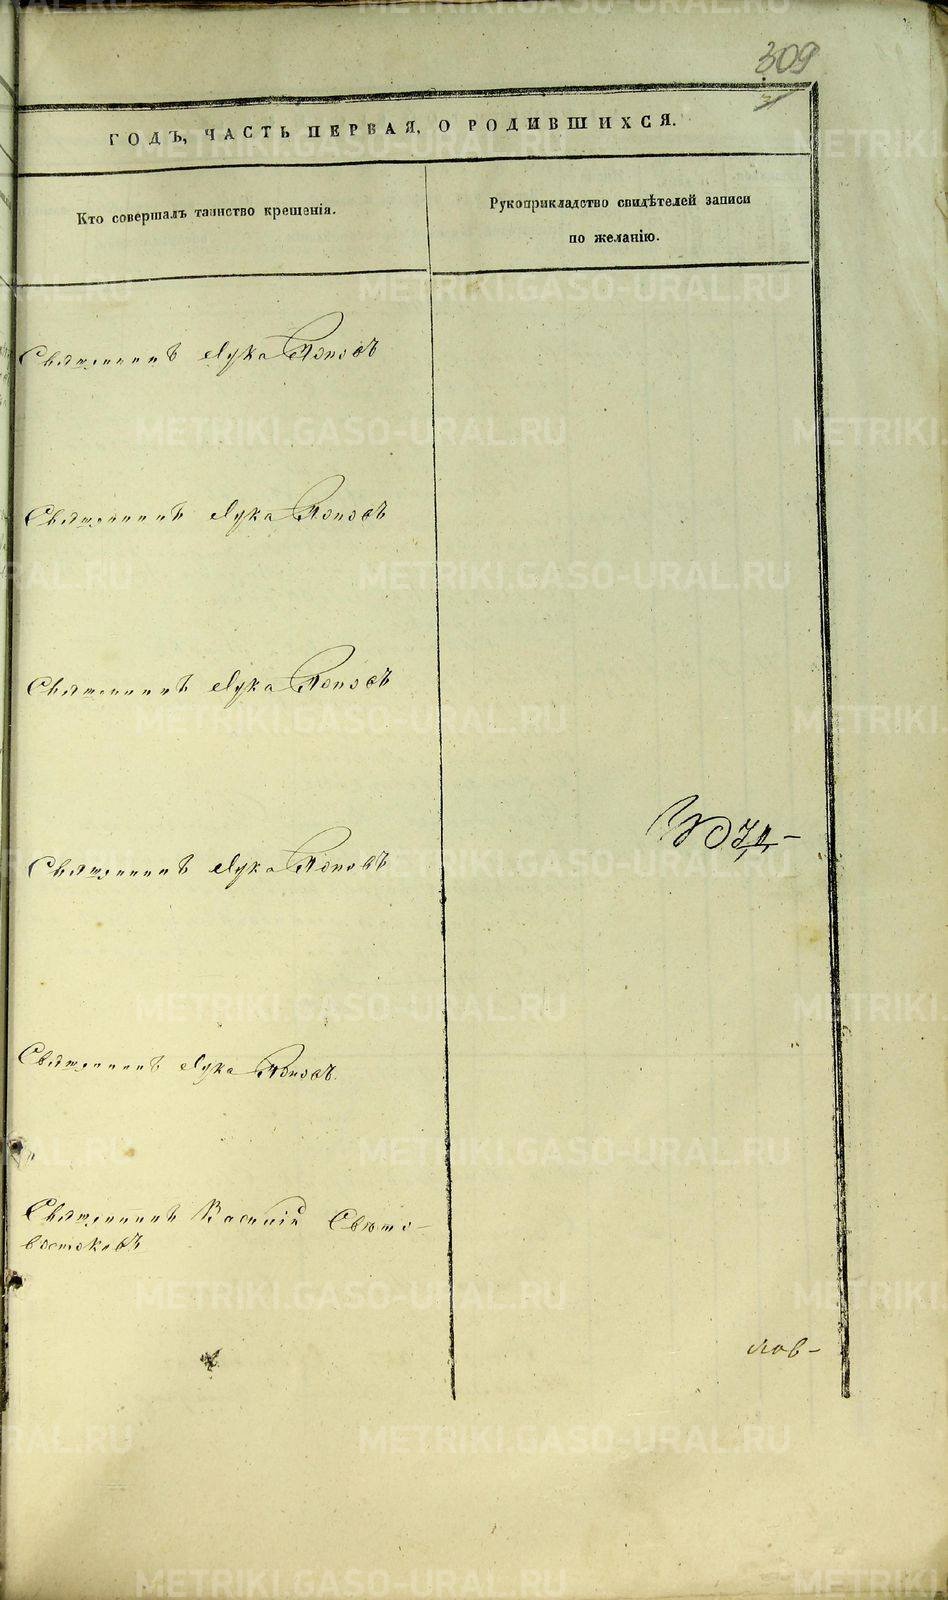 309
ГОДЪ, ЧАСТЬ ПЕРВАЯ, О РОДИВШИХСЯ.
Кто совершалъ таинство крещенія.
Рукоприкладство свидѣтелей записи
по желанію.
Священникъ Лука Поповъ
Священникъ Лука Поповъ
Священникъ Лука Поповъ
Священникъ Лука Поповъ
Священникъ Лука Поповъ.
Священникъ Василій Свѣто-
востоковъ
лов-
METRIKI.GASO-URAL.RU